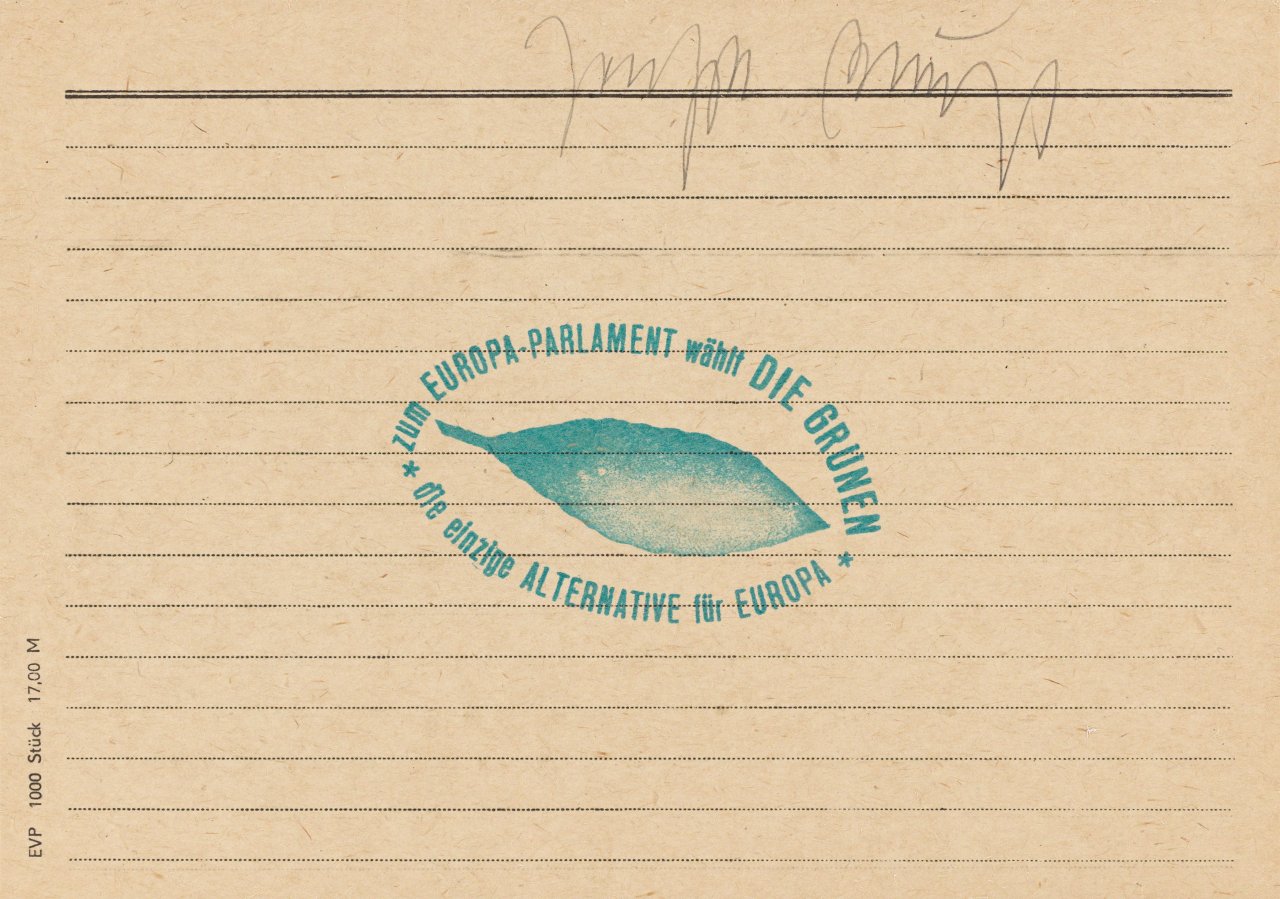 zum EUROPA-PARLAMENT wählt DIE GRÜNEN
* die einzige ALTERNATIVE für EUROPA *
EVP 1000 Stück 17,00 M